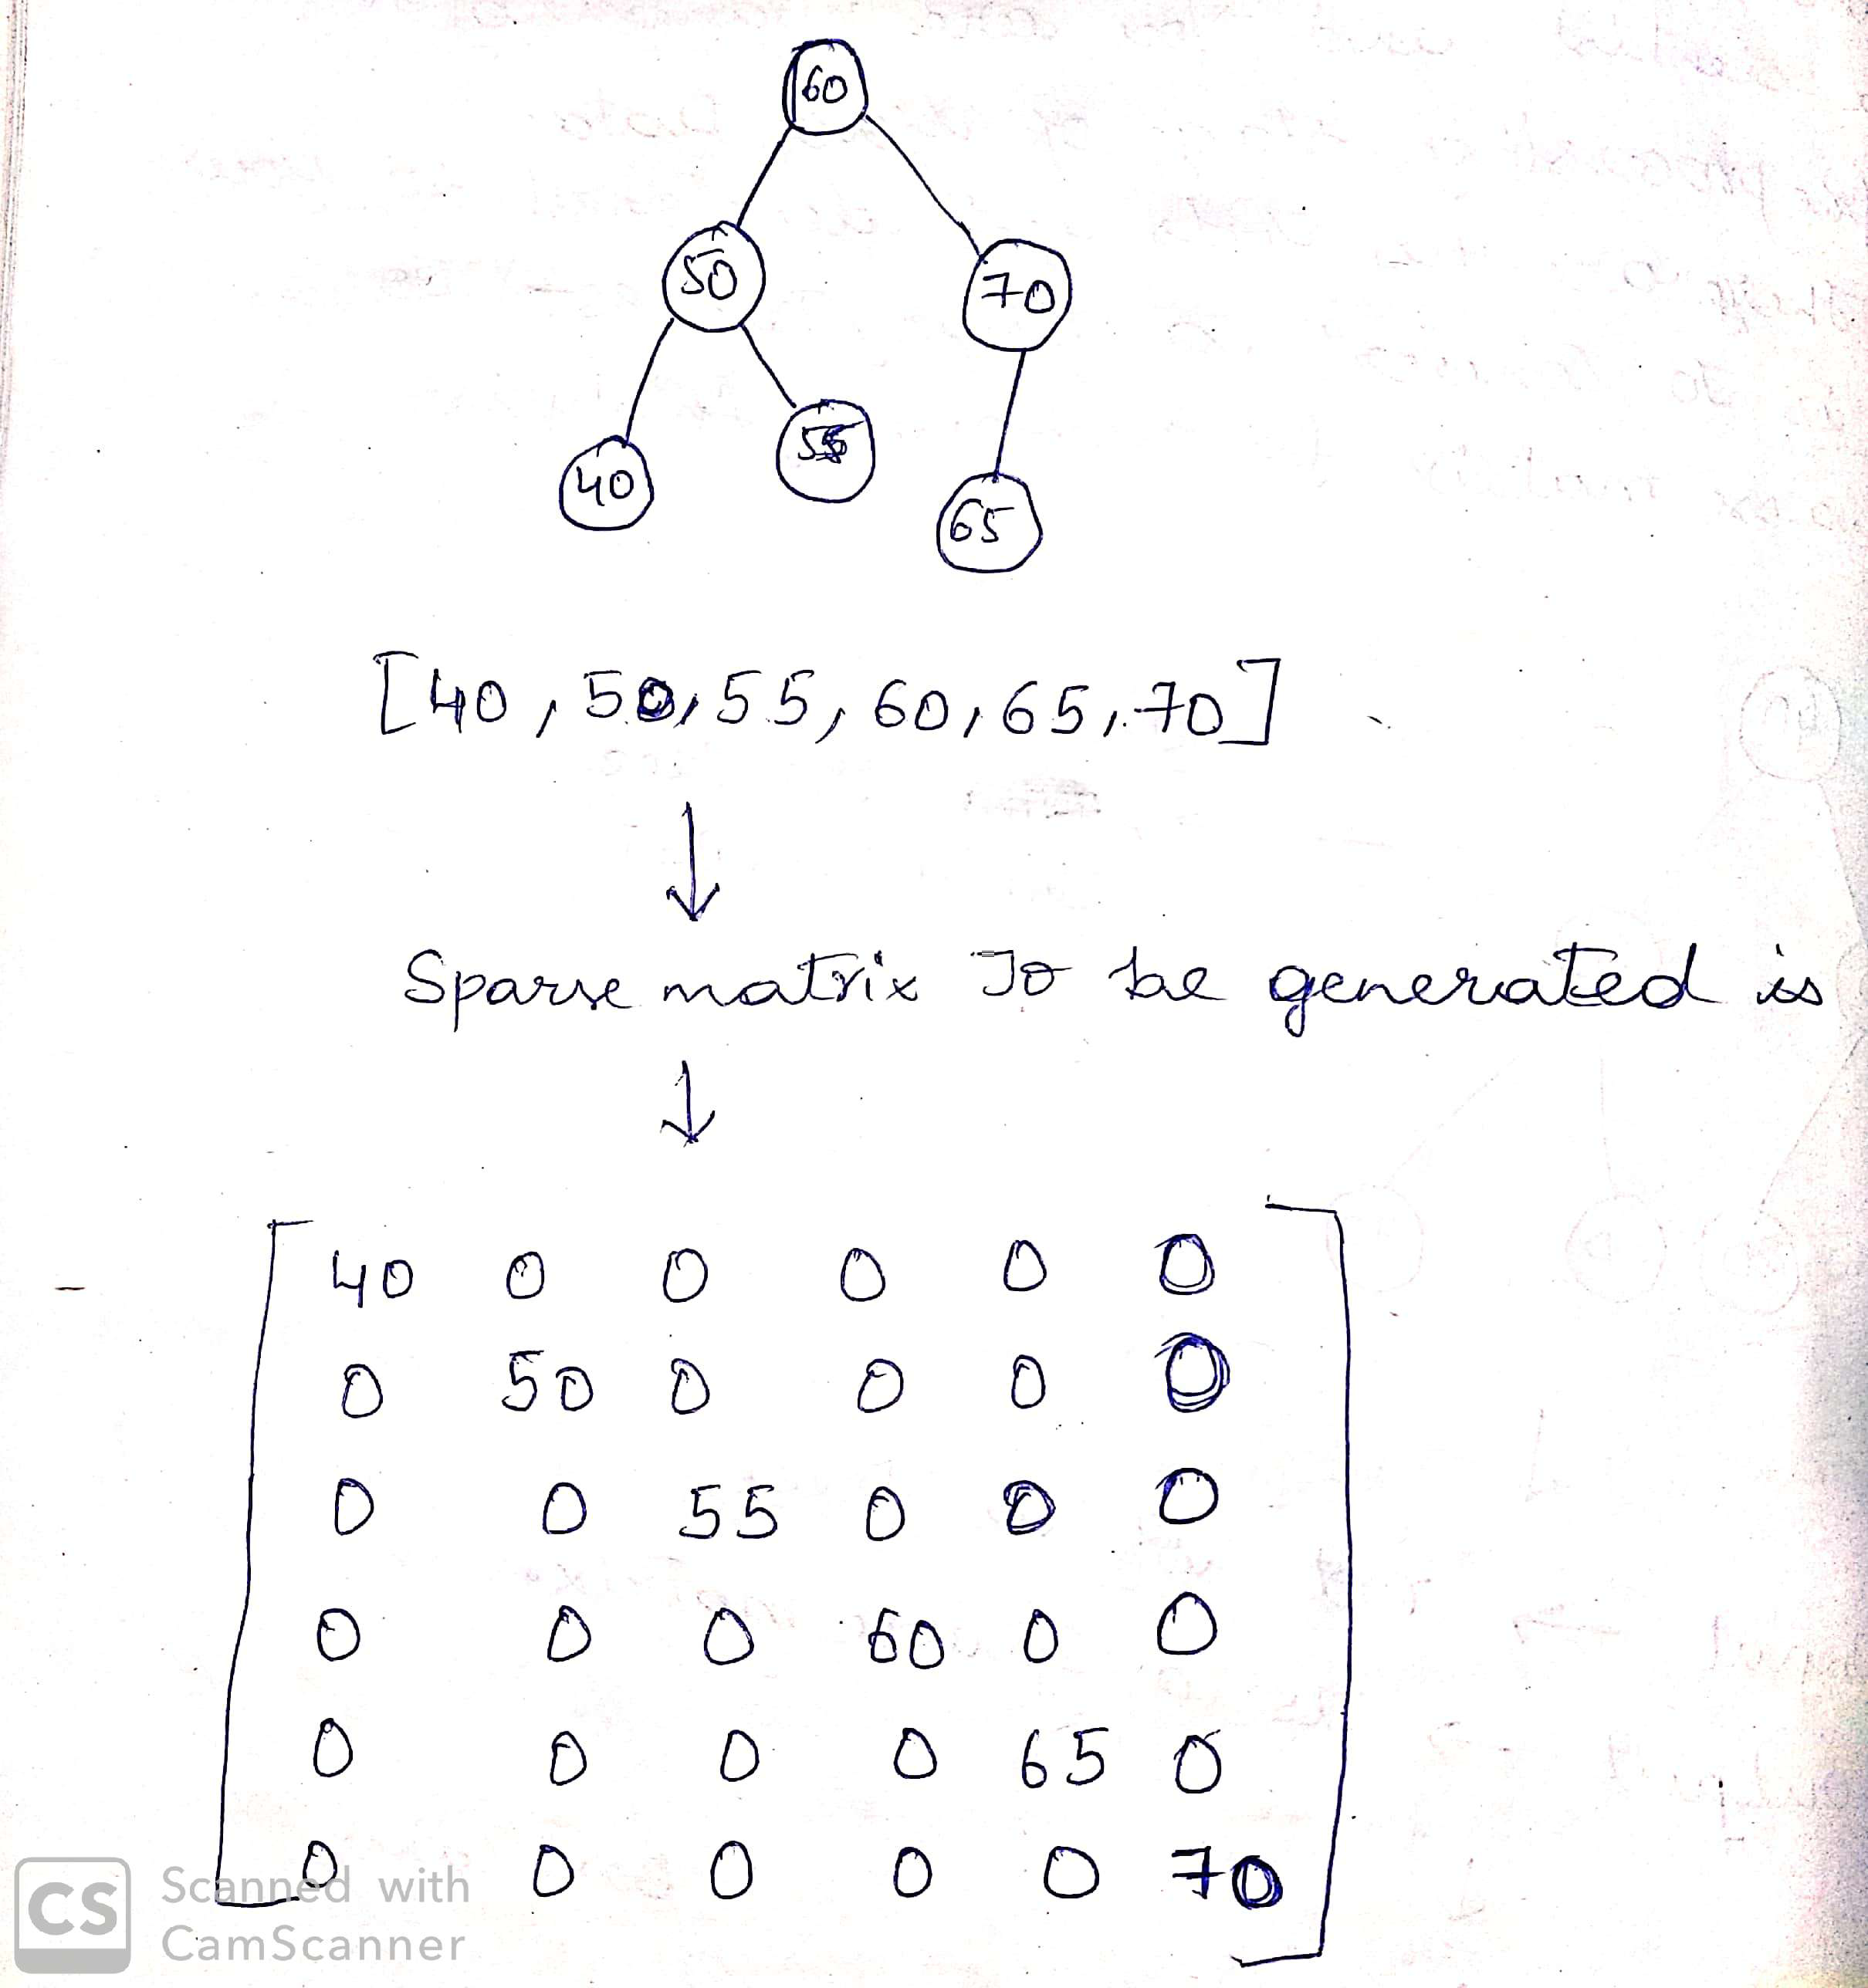 60
50 70
40 55 65
[40, 50, 55, 60, 65, 70]
Sparse matrix To be generated is
40 0 0 0 0 0
0 50 0 0 0 0
0 0 55 0 0 0
0 0 0 60 0 0
0 0 0 0 65 0
0 0 0 0 0 70
CS Scanned with
CamScanner